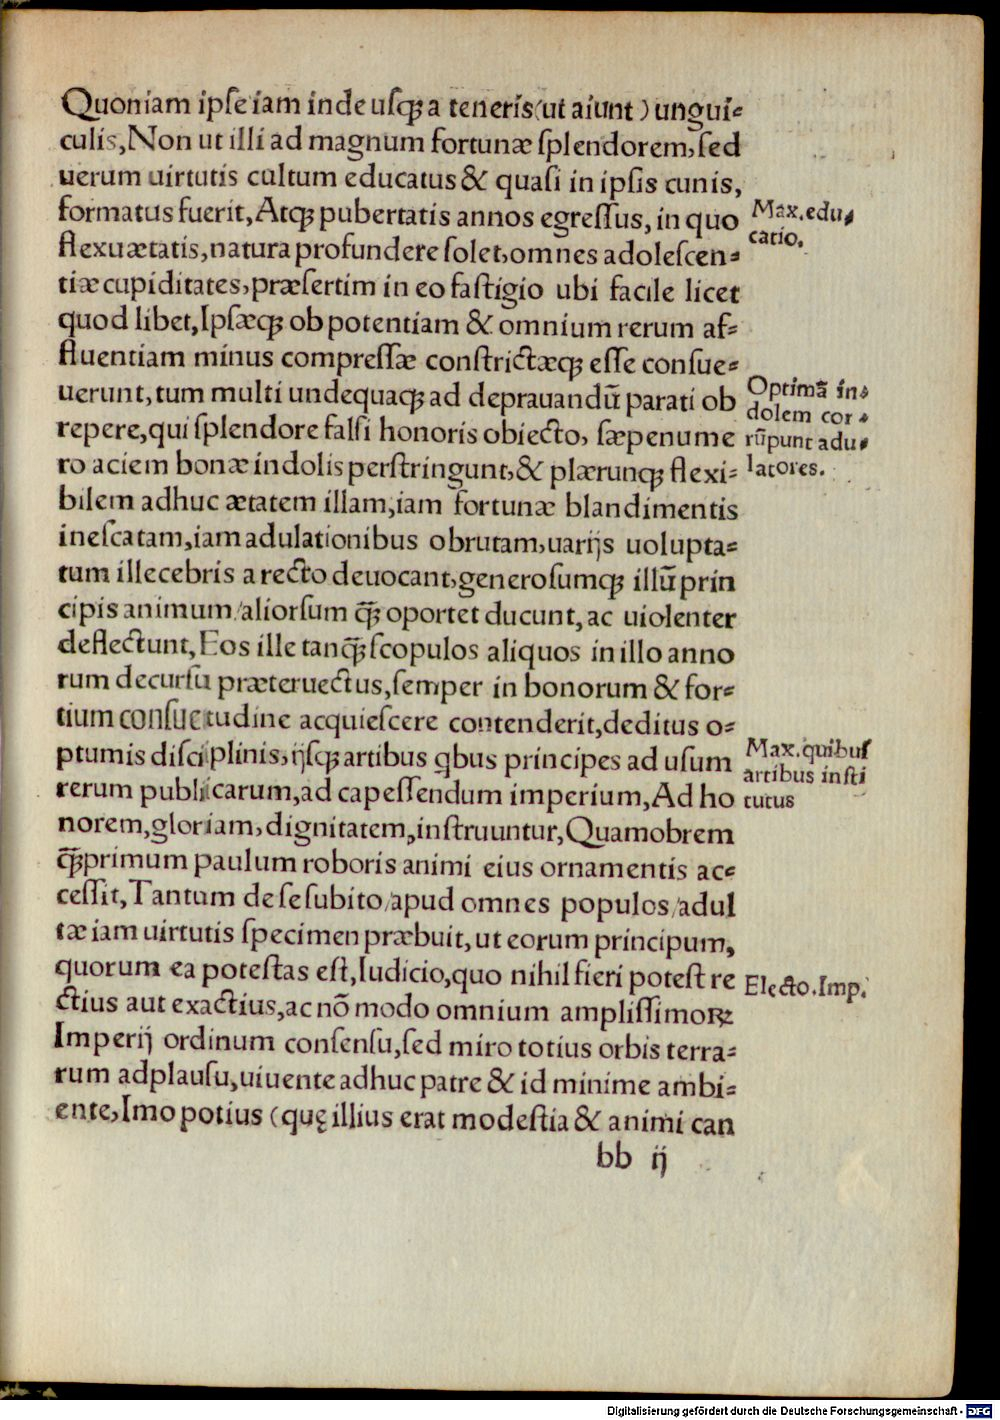 Quoniam ipſe iam inde uſqꝫ a teneris (ut aiunt) ungui-
culis, Non ut illi ad magnum fortunæ ſplendorem, ſed
uerum uirtutis cultum educatus & quaſi in ipſis cunis,
formatus fuerit, Atqꝫ pubertatis annos egreſſus, in quo
flexu ætatis, natura profundere ſolet, omnes adoleſcen-
tiæ cupiditates, præſertim in eo faſtigio ubi facile licet
quod libet, Ipſæqꝫ ob potentiam & omnium rerum af-
fluentiam minus compreſſæ conſtrictæqꝫ eſſe conſue-
uerunt, tum multi undequaqꝫ ad deprauandū parati ob
repere, qui ſplendore falſi honoris obiecto, ſæpenume
ro aciem bonæ indolis perſtringunt, & plærunqꝫ flexi-
bilem adhuc ætatem illam, iam fortunæ blandimentis
ineſcatam, iam adulationibus obrutam, uarijs uolupta-
tum illecebris a recto deuocant, generoſumqꝫ illū prin
cipis animum/aliorſum qꝫ̄ oportet ducunt, ac uiolenter
deflectunt, Eos ille tanqꝫ̄ ſcopulos aliquos in illo anno
rum decurſu præteruectus, ſemper in bonorum & for-
tium conſuetudine acquieſcere contenderit, deditus o-
ptumis diſciplinis, ijſqꝫ artibus qbus principes ad uſum
rerum publicarum, ad capeſſendum imperium, Ad ho
norem, gloriam, dignitatem, inſtruuntur, Quamobrem
qꝫ̄primum paulum roboris animi eius ornamentis ac-
ceſſit, Tantum de ſe ſubito/apud omnes populos/adul
tæ iam uirtutis ſpecimen præbuit, ut eorum principum,
quorum ea poteſtas eſt, Iudicio, quo nihil fieri poteſt re
ctius aut exactius, ac nō modo omnium ampliſſimoꝝ
Imperij ordinum conſenſu, ſed miro totius orbis terra-
rum adplauſu, uiuente adhuc patre & id minime ambi-
ente, Imo potius (quę illius erat modeſtia & animi can
bb ij
Max. edu-
catio.
Optimā in-
dolem cor-
rūpunt adu-
latores.
Max. quibuſ
artibus inſti
tutus
Electo. Imp.
Digitalisierung gefördert durch die Deutsche Forschungsgemeinschaft - DFG